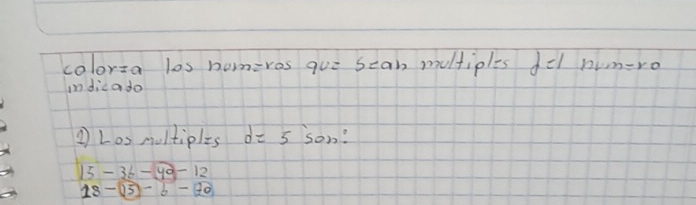 colorea los numeros que sean multiples del numero
indicado
1) Los multiples de 5 son:
15 - 36 - 40 - 12
18 - 15 - 6 - 20